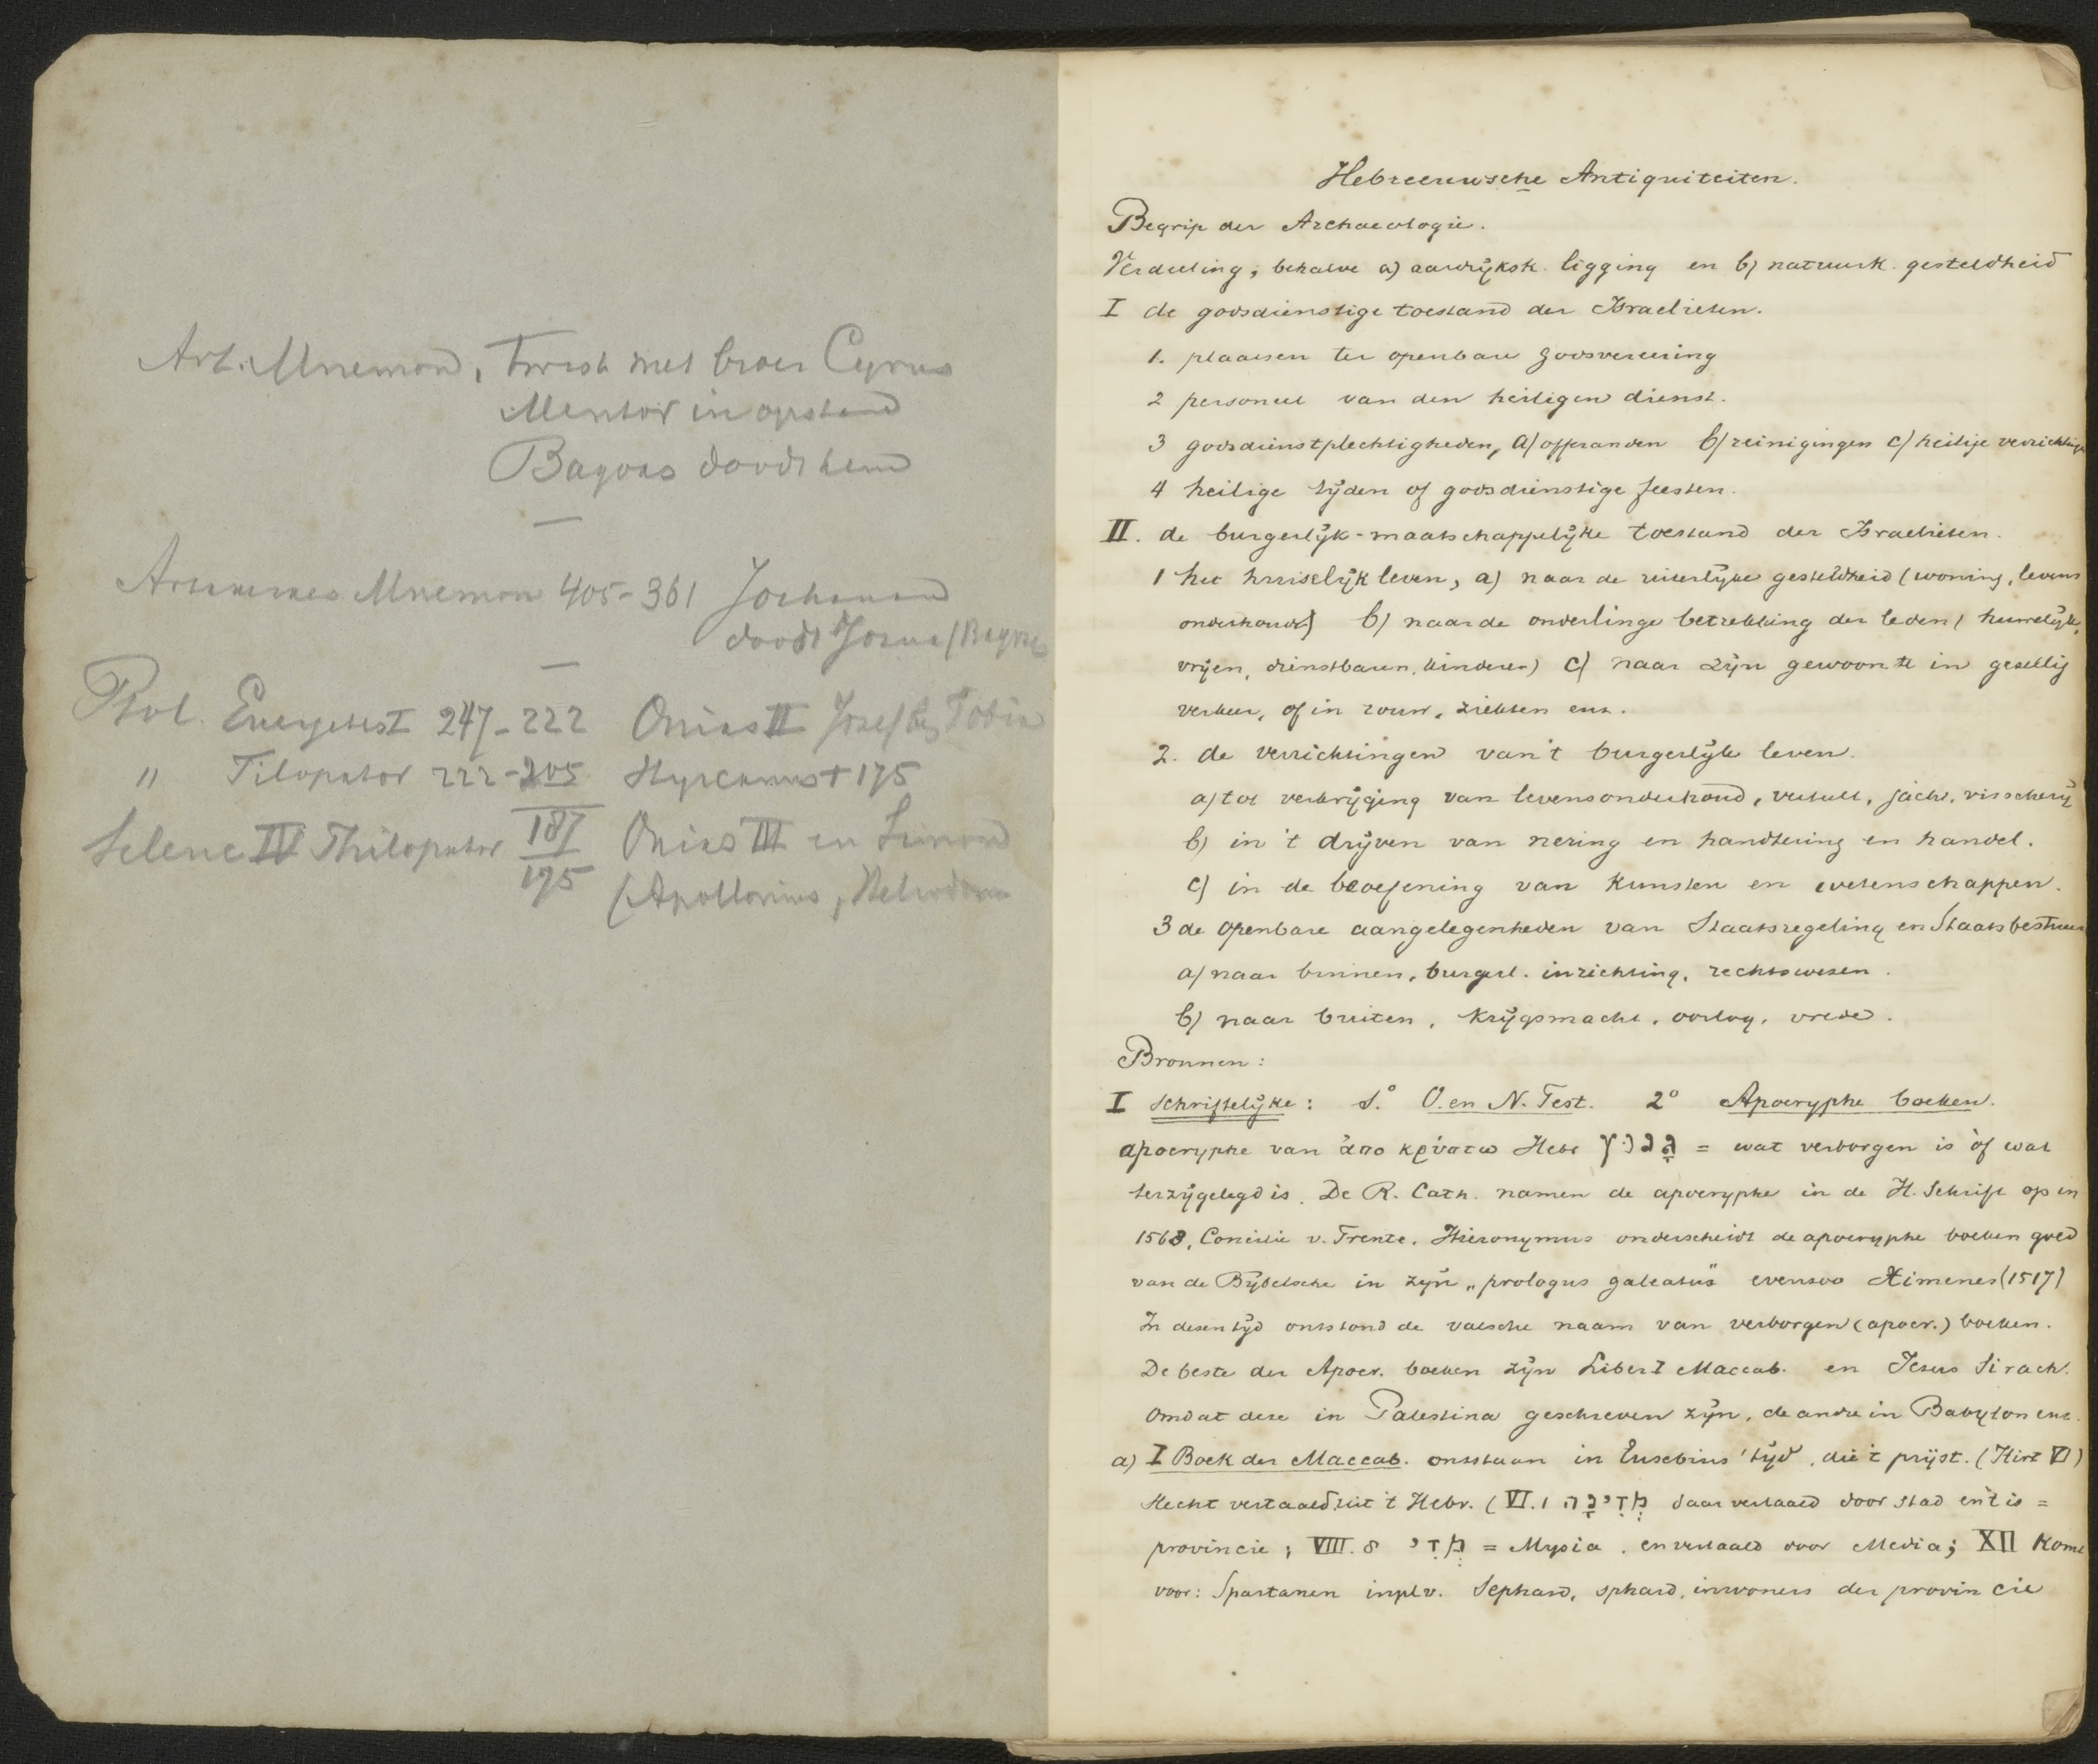 Art. Mnemon, Twist met broer Cyrus
Mentor in opstand
Bagoas doodt hem
Artaxerxes Mnemon 405-361 Jochanan
doodt Josua (Bagoas
Ptol. Euergetes I 247-222 Onias II Josef bg Tobia
" Filopator 222-205 Hyrcanus + 175
Seleuc IV Philopator 187 Onias III en Simon
175 (Apollonius, Heliodorus
Hebreeuwsche Antiquiteiten.
Begrip der Archaeologie.
Verdeeling; behalve a) aardrijksk. ligging en b) natuurk. gesteldheid
I de godsdienstige toestand der Israelieten.
1. plaatsen ter openbare godsvereering
2 personeel van den heiligen dienst.
3 godsdienstplechtigheden, a) offeranden b) reinigingen c) heilige verrichting
4 heilige tijden of godsdienstige feesten.
II. de burgerlijk-maatschappelijke toestand der Israelieten.
1 het huiselijk leven, a) naar de uiterlijke gesteldheid (woning, levens
onderhoud) b) naar de onderlinge betrekking der leden (huwelijk,
vrijen, dienstbaren, kinderen) c) naar zijn gewoonte in gezellig
verkeer, of in rouw, ziekten enz.
2. de verrichtingen van 't burgerlijk leven.
a) tot verkrijging van levensonderhoud, veeteelt, jacht, visscherij
b) in 't drijven van nering en handtering en handel.
c) in de beoefening van kunsten en wetenschappen.
3 de openbare aangelegenheden van Staatsregeling en Staatsbestuur
a) naar binnen, burgerl. inrichting, rechtswezen.
b) naar buiten, krijgsmacht, oorlog, vrede.
Bronnen:
I schriftelijke: 1.° O. en N. Test. 2° Apocryphe boeken.
apocryphe van ἀπο κρύπτω Hebr גנז = wat verborgen is òf wat
terzijgelegd is. De R. Cath. namen de apocryphe in de H. Schrift op in
1563, Concilie v. Trente. Hieronymus onderscheidt de apocryphe boeken goed
van de Bijbelsche in zijn „prologus galeatus" evenzoo Ximenes (1517)
In dezen tijd ontstond de valsche naam van verborgen (apocr.) boeken.
De beste der Apocr. boeken zijn Liber I Maccab. en Jesus Sirach.
Omdat deze in Palestina geschreven zijn, de andre in Babylon enz.
a) I Boek der Maccab. ontstaan in Eusebius' tijd, die 't prijst. (Hist VI)
Slecht vertaald uit 't Hebr. (VI.1 מְדִינָה daar vertaald door stad en 't is =
provincie; VIII. 8 מָדַי = Mysia. en vertaald door Media; XII komt
voor: Spartanen in pl v. Sephard, sphard, inwoners der provincie